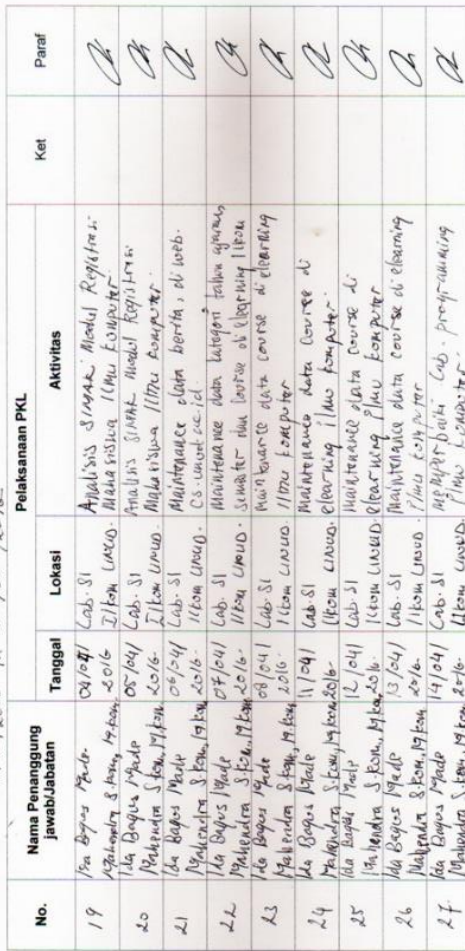 No.
Nama Penanggung
jawab/Jabatan
Pelaksanaan PKL
Tanggal
Lokasi
Aktivitas
Ket
Paraf
19
Ida Bagus Made
Mahendra S.kom, M.kom
04/04/
2016
Lab. SI
Ilkom UNUD.
Analisis SIMAK Modul Registrasi
Mahasiswa Ilmu Komputer.
20
Ida Bagus Made
Mahendra S.kom, M.kom
05/04/
2016.
Lab. SI
Ilkom UNUD.
Analisis SIMAK Modul Registrasi
Mahasiswa Ilmu Komputer.
21
Ida Bagus Made
Mahendra S.kom, M.kom
06/04/
2016.
Lab. SI
Ilkom UNUD.
Maintenance data berita, di web.
cs.unud.ac.id.
22
Ida Bagus Made
Mahendra S.kom, M.kom
07/04/
2016.
Lab. SI
Ilkom UNUD.
Maintenance data kategori tahun ajaran,
semester dan course di elearning Ilkom
23
Ida Bagus Made
Mahendra S.kom, M.kom
08/04/
2016.
Lab. SI
Ilkom UNUD.
Maintenance data course di elearning
Ilmu komputer
24
Ida Bagus Made
Mahendra S.kom, M.kom
11/04/
2016.
Lab. SI
Ilkom UNUD.
Maintenance data course di
elearning ilmu komputer.
25
Ida Bagus Made
Mahendra S.kom, M.kom
12/04/
2016.
Lab. SI
Ilkom UNUD.
Maintenance data course di
elearning ilmu komputer
26
Ida Bagus Made
Mahendra S.kom, M.kom
13/04/
2016.
Lab. SI
Ilkom UNUD.
Maintenance data course di elearning
ilmu komputer
27.
Ida Bagus Made
Mahendra S.kom, M.kom
14/04/
2016.
Lab. SI
Ilkom UNUD.
Memperbaiki Lab. programming
ilmu komputer.